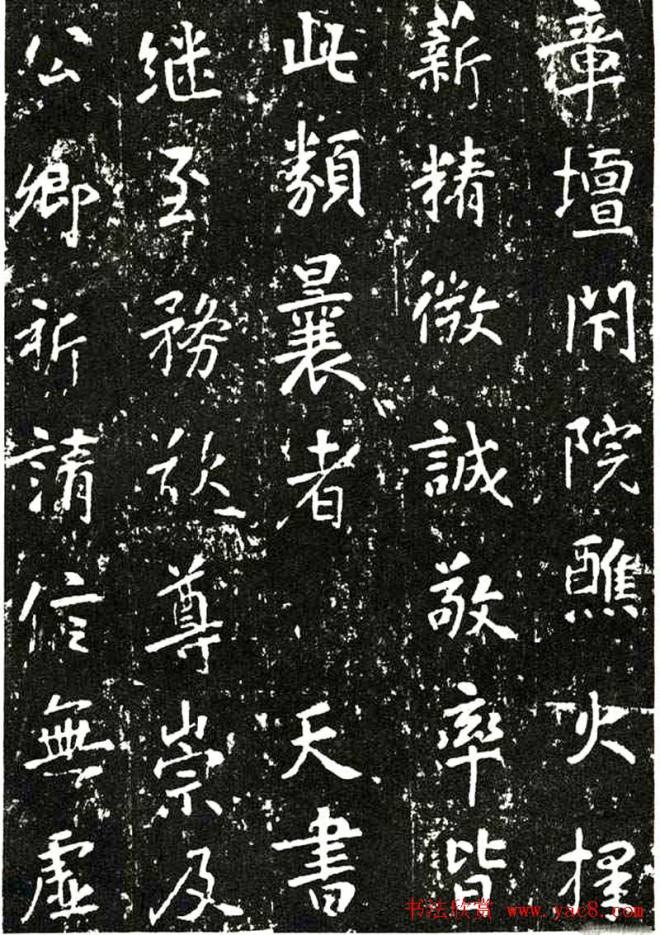 章壇閑院醮火擇
薪精微誠敬率皆
此類曩者 天書
继至務欲尊崇及
公卿祈請信無虛
书法欣赏 www.yac8.com